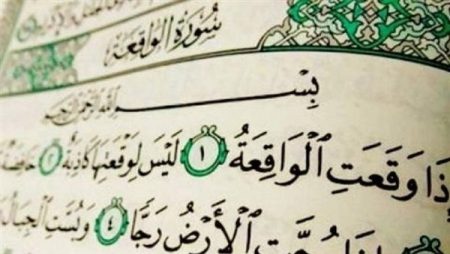 سُورَةُ الوَاقِعَةِ
بِسْمِ اللَّهِ الرَّحْمَٰنِ الرَّحِيمِ
إِذَا وَقَعَتِ ٱلْوَاقِعَةُ ١ لَيْسَ لِوَقْعَتِهَا كَاذِبَةٌ ٢ خَافِضَةٌ
رُجَّتِ ٱلْأَرْضُ رَجًّا ٤ وَبُسَّتِ ٱلْجِبَالُ